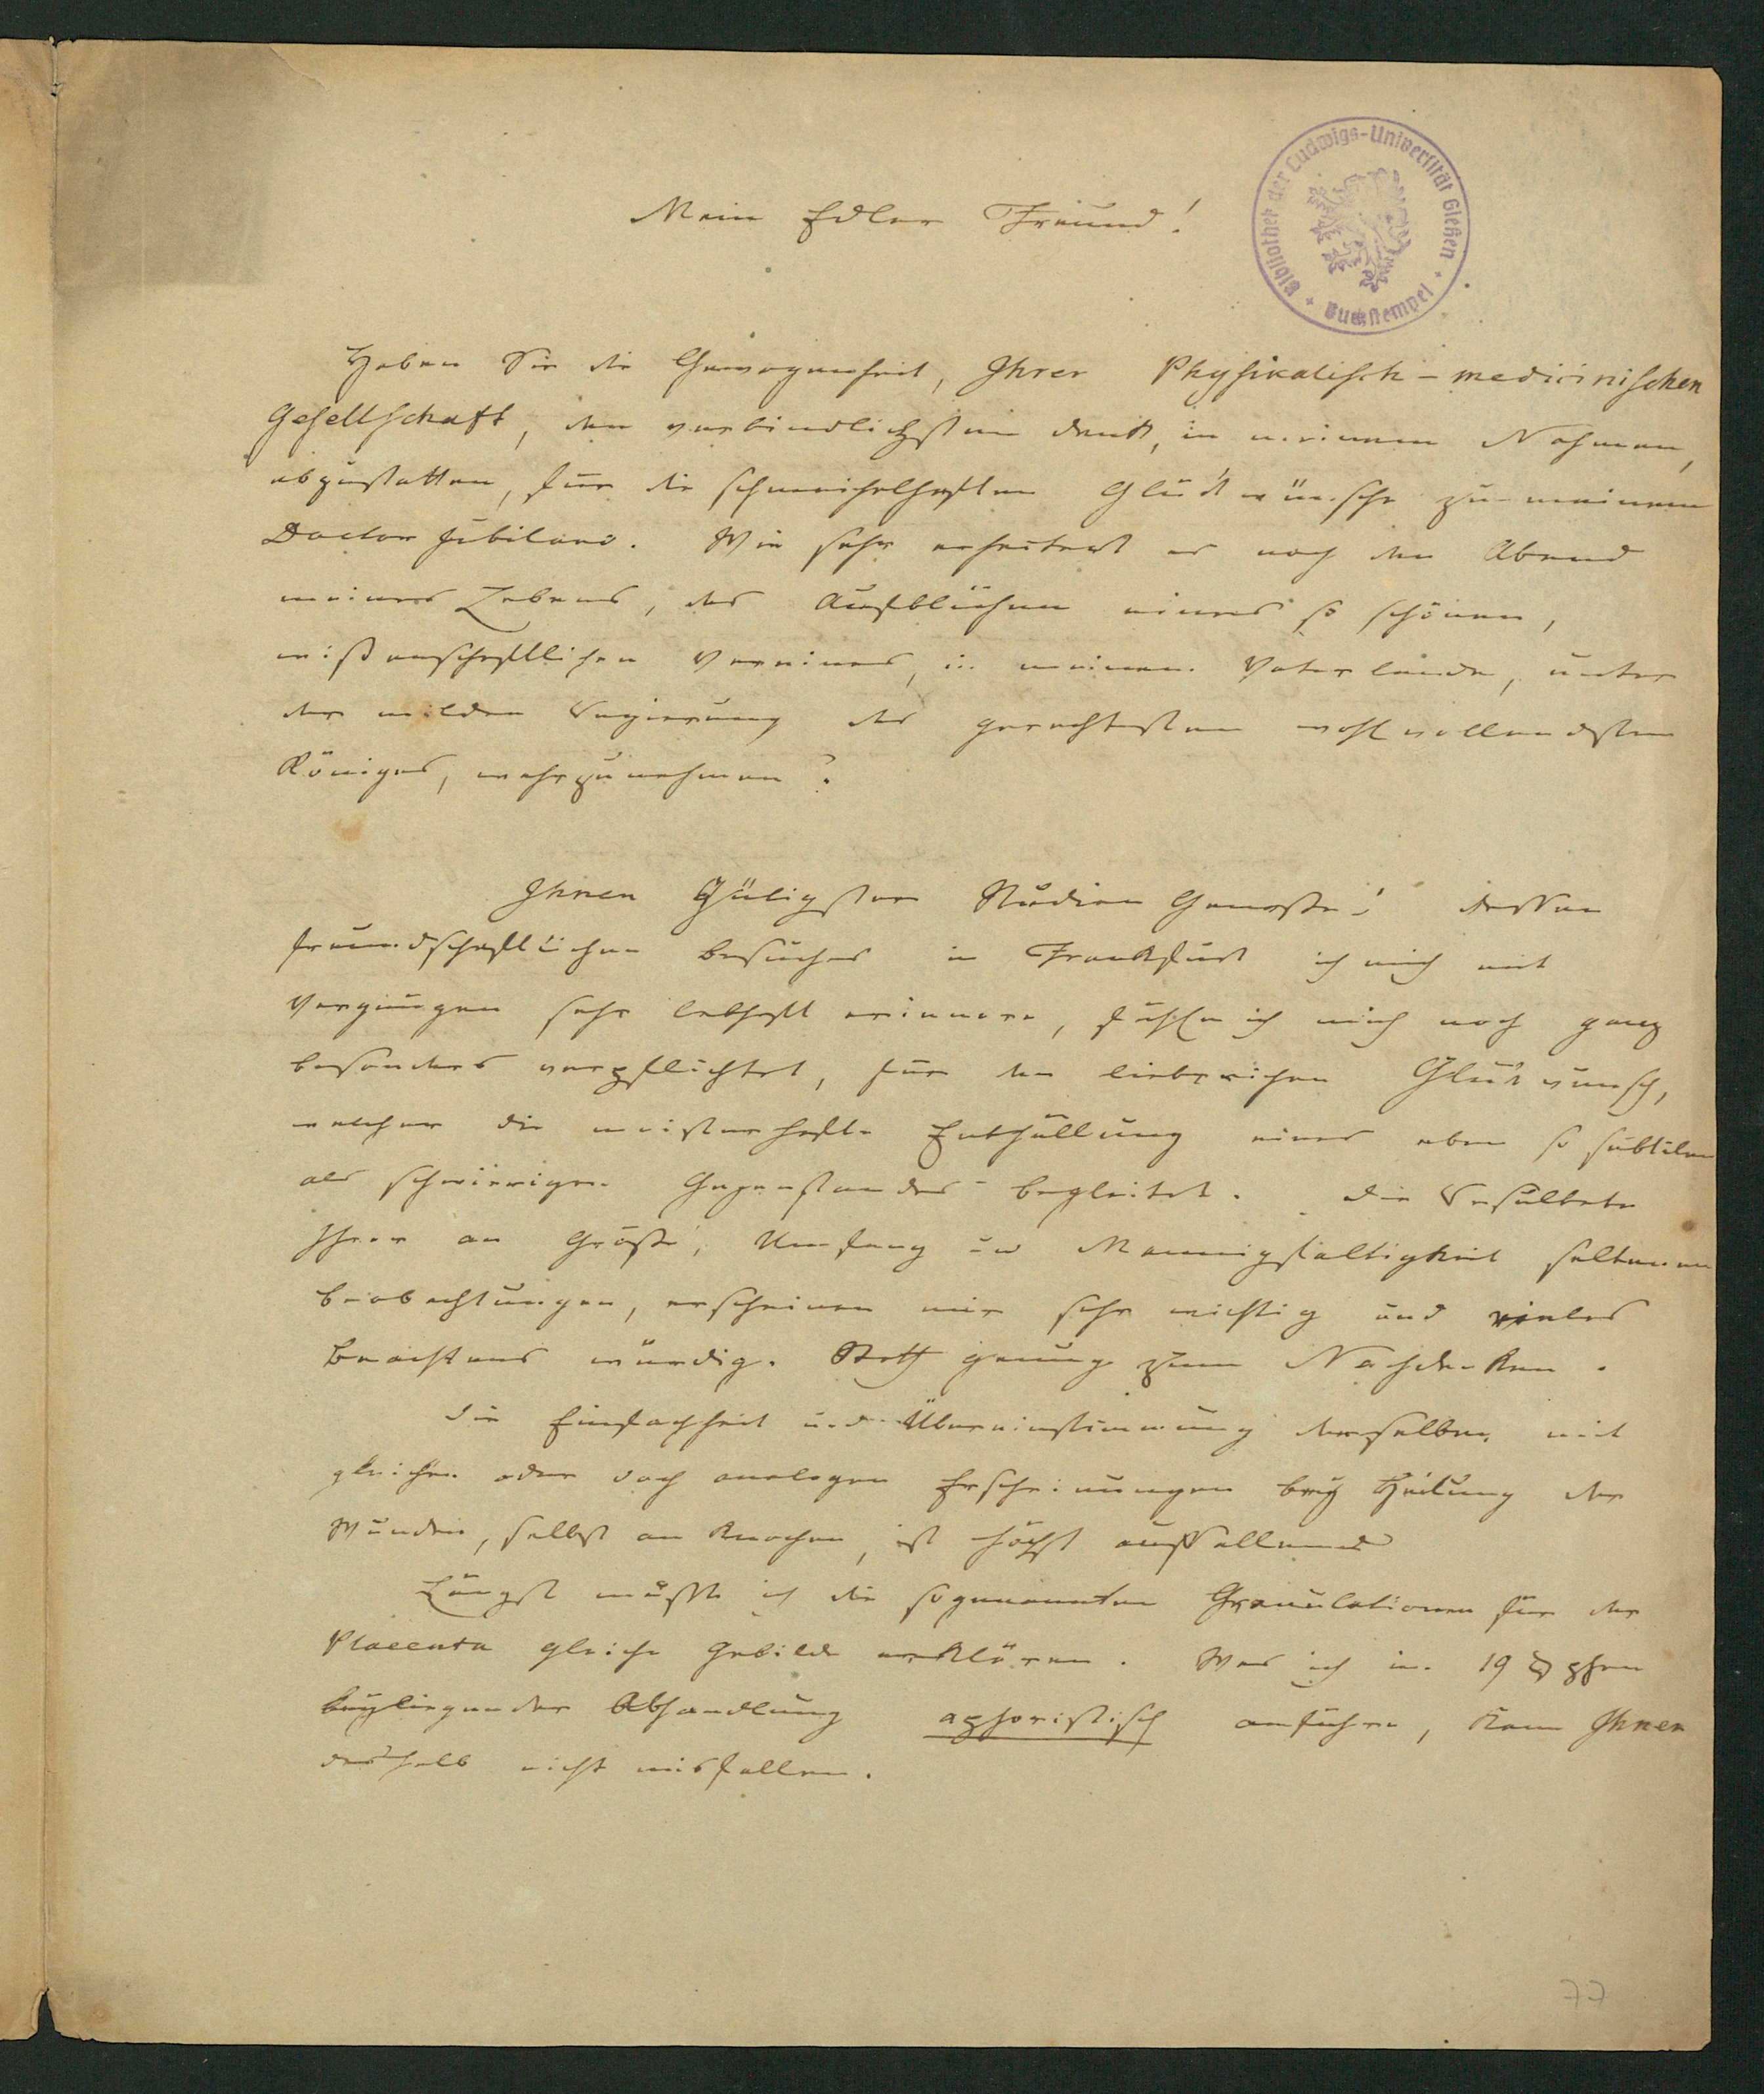 Mein Edler Freund!
Bibliothek der Ludwigs-Universität Gießen + Buchstempel +
Haben Sie die Gewogenheit, Ihrer Physikalisch-medicinischen
Gesellschaft, den verbindlichsten Dank, in meinem Nahmen,
abzustatten, für die schmeichelhaften Glückwünsche zu meinem
Doctor Jubilaeo. Wie sehr erheitert es noch den Abend
meines Lebens, das Aufblühen eines so schönen,
wißenschaftlichen Vereines, in meinem Vaterlande, unter
der milden Regierung des gerechtesten wohlwollendsten
Königes, wahrzunehmen?
Ihnen Gütigster Studien Genosse! dessen
freundschaftlichen Besuches in Frankfurt ich mich mit
Vergnügen sehr lebhaft erinnere, fühle ich mich noch ganz
besonders verpflichtet, für den liebreichen Glückwunsch,
welcher die meisterhafte Enthüllung eines eben so subtilen
als schwierigen Gegenstandes begleitet. Die Resultate
Ihrer an Größe, Umfang u Mannigfaltigkeit seltenen
Beobachtungen, erscheinen mir sehr wichtig und vieles
Beachtens würdig. Stoff genug zum Nachdenken.
Die Einfachheit und Übereinstimmung derselben mit
gleichen oder doch analogen Erscheinungen bey Heilung der
Wunden, selbst an Knochen, ist höchst auffallend
Längst mußte ich die sogenannten Granulationen für der
Placenta gleiche Gebilde erklären. Was ich im 19 §phen
beyliegender Abhandlung aphoristisch anführe, kann Ihnen
deshalb nicht misfallen.
77